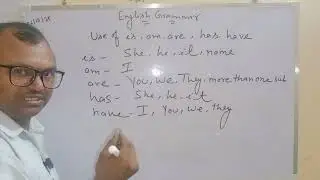 English Grammar
Use of is, am, are, has have
is - She, he, it, name
am - I
are - You, we, They, more than one sub
has - She, he, it
have - I, You, we, They